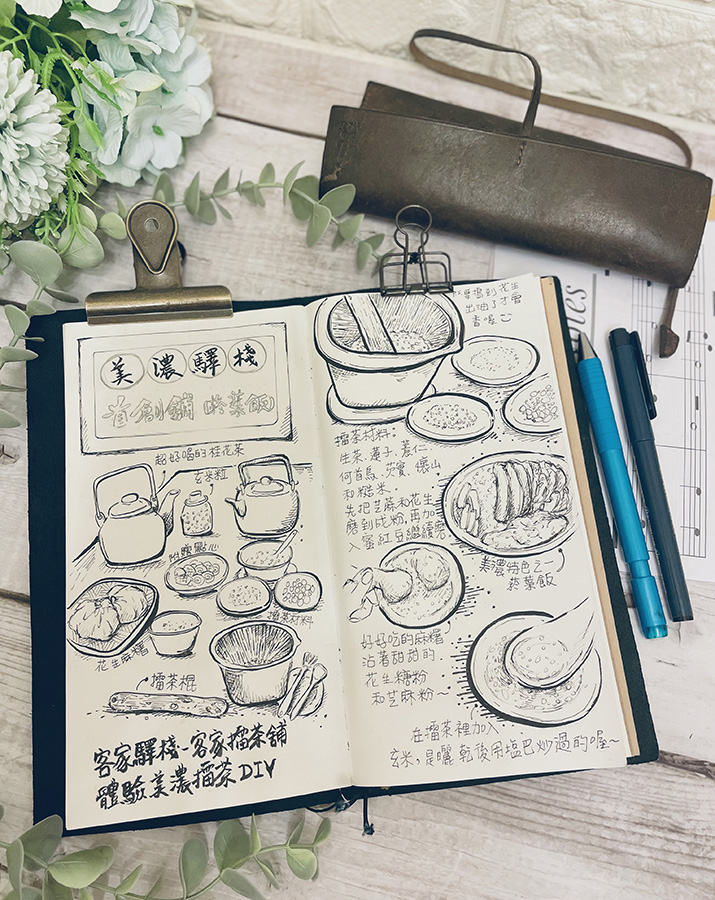 美濃驛棧
首創鋪 菸葉飯
超好喝的桂花茶
玄米粒
點心
花生麻糬
擂茶材料
擂茶棍
客家驛棧-客家擂茶舖
體驗美濃擂茶DIY
要擂到花生
出油了才會
香喔
擂茶材料,
生茶、蓮子、薏仁、
何首烏、芡實、懷山
和糙米
先把芝麻和花生
磨到成粉,再加
入蜜紅豆繼續磨
美濃特色之一
菸葉飯
好好吃的麻糬
沾著甜甜的
花生糖粉
和芝麻粉~
在擂茶裡加入
玄米,是曬乾後用塩巴炒過的喔~
nes